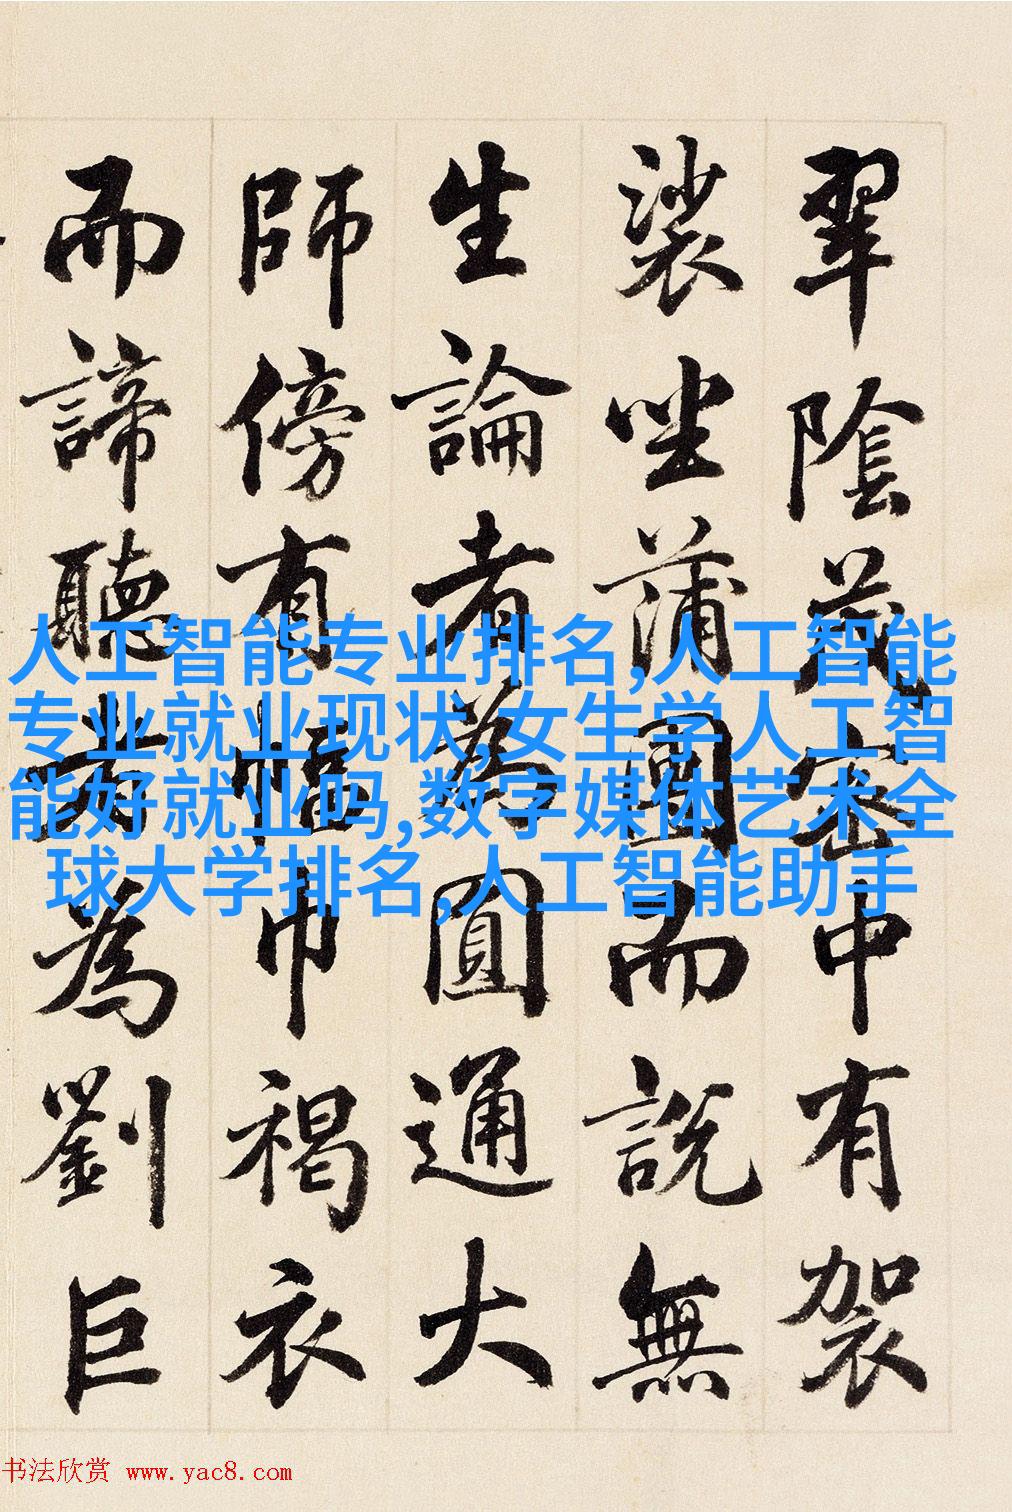 翠陰茂密中有袈
裟坐蒲團而說無
生論者為圓通大
師傍有幅巾褐衣
而諦聽者為劉巨
人工智能专业排名,人工智能
专业就业现状,女生学人工智
能好就业吗,数字媒体艺术全
球大学排名,人工智能助手
书法欣赏 www.yac8.com